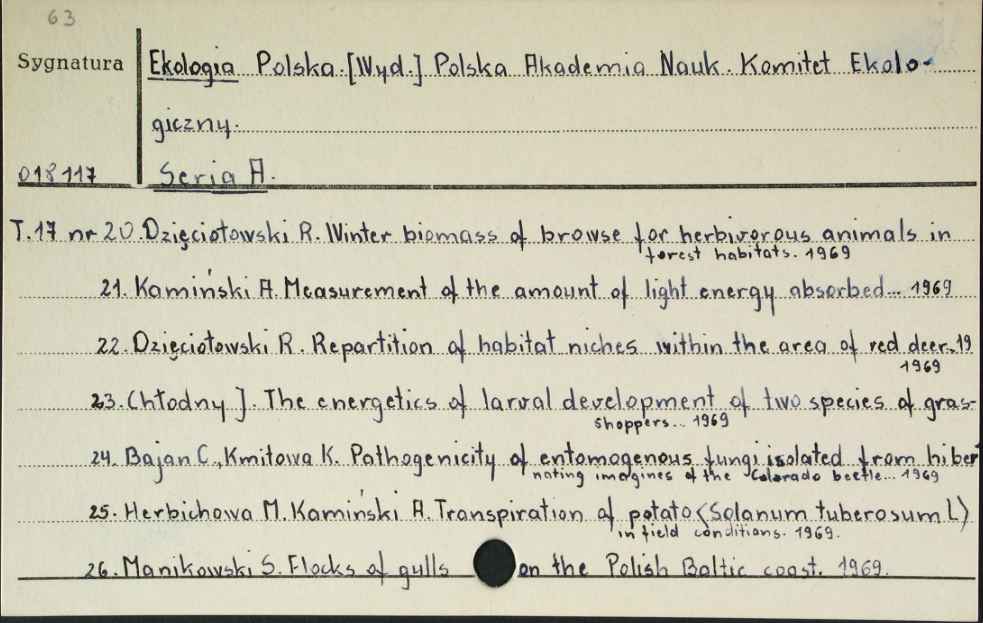 63
Sygnatura
Ekologia Polska. [Wyd.] Polska Akademia Nauk. Komitet Ekolo-
giczny.
018117
Seria A.
T.17 nr 20. Dzięciołowski R. Winter biomass of browse for herbivorous animals in
forest habitats. 1969
21. Kamiński A. Measurement of the amount of light energy absorbed... 1969
22. Dzięciołowski R. Repartition of habitat niches within the area of red deer. 19
1969
23. Chłodny J. The energetics of larval development of two species of gras-
shoppers... 1969
24. Bajan C., Kmitowa K. Pathogenicity of entomogenous fungi isolated from hiber
nating imagines of the Colorado beetle... 1969
25. Herbichowa M. Kamiński A. Transpiration of potato (Solanum tuberosum L)
in field conditions. 1969.
26. Manikowski S. Flocks of gulls on the Polish Baltic coast. 1969.